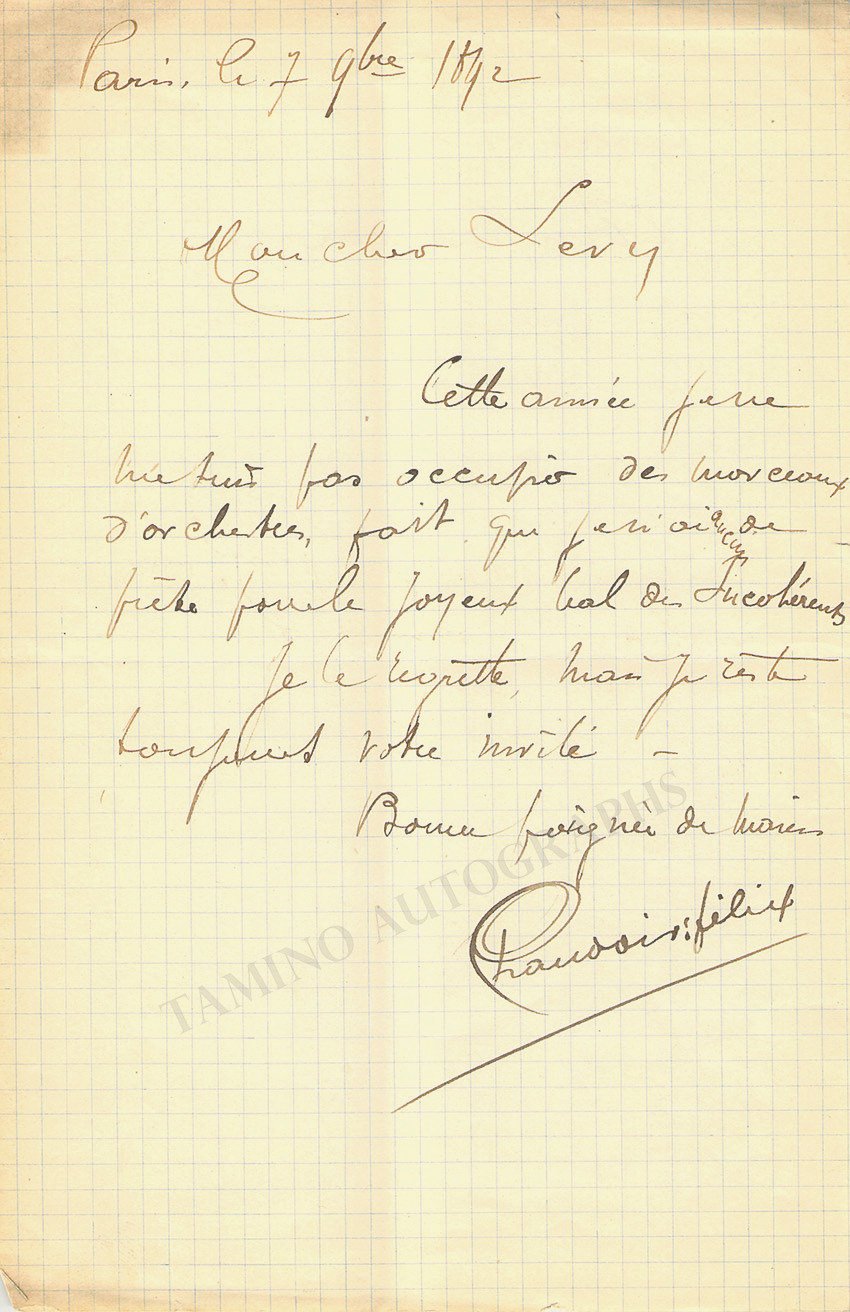 Paris, le 7 9bre 1892
Mon cher Levy
Cette année je ne
me suis pas occupé des morceaux
d'orchestres, fait que je n'ai aucun de
prêts pour le joyeux bal des Incohérents
Je le regrette, mais je reste
toujours votre invité –
Bonne poignée de mains
félix
TAMINO AUTOGRAPHS